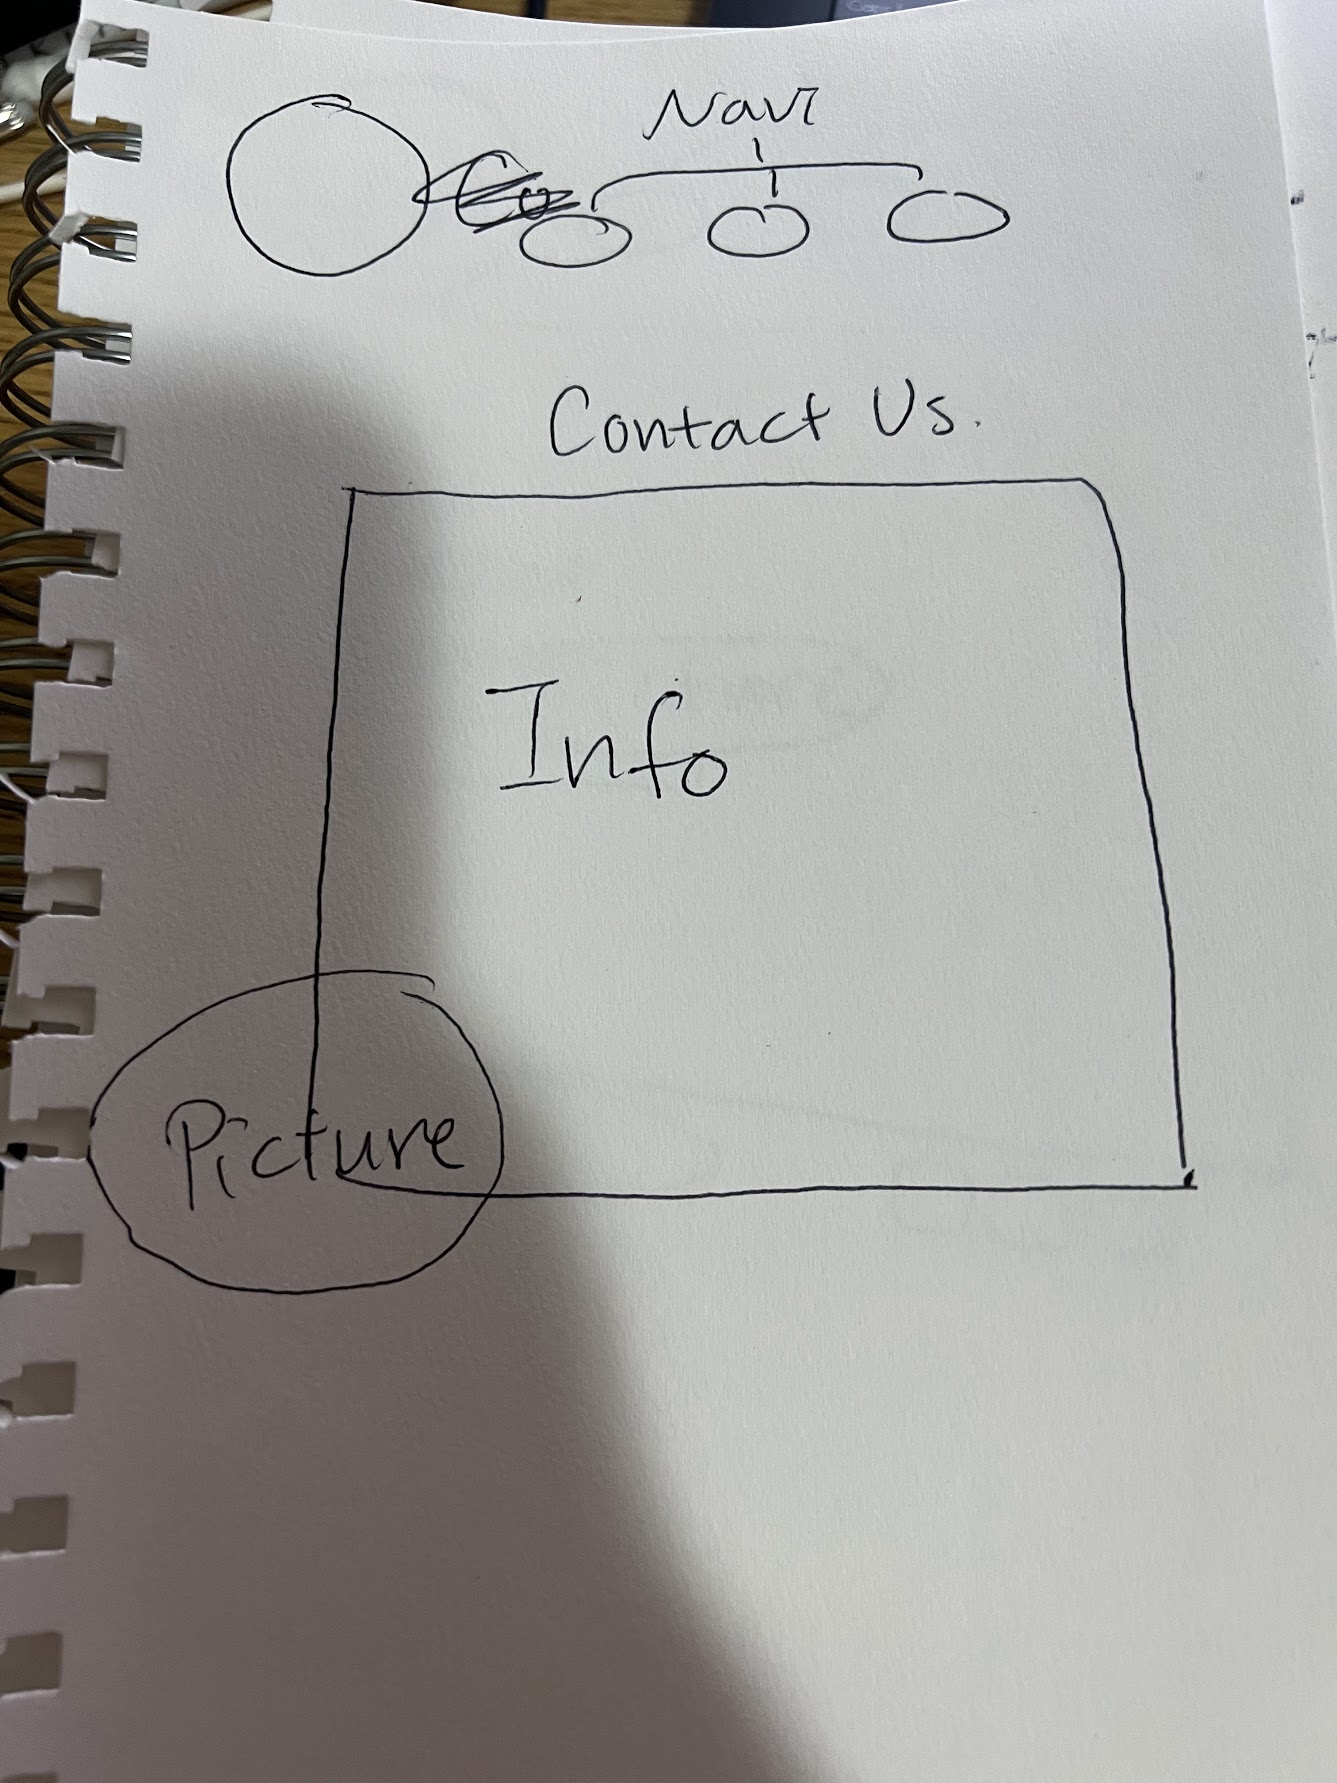 Navi
Contact Us.
Info
Picture